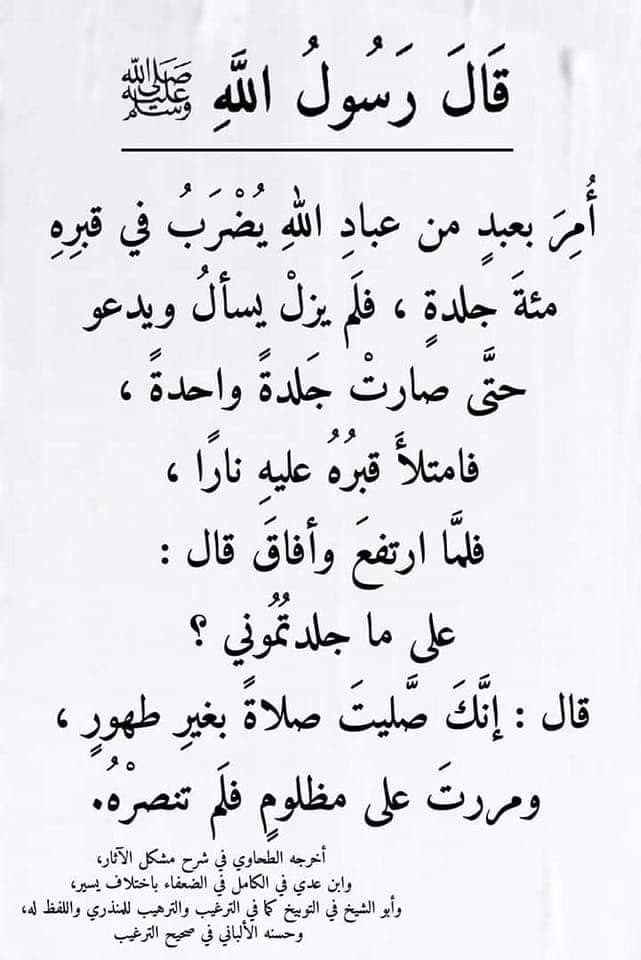 قَالَ رَسُولُ اللَّهِ ﷺ
أُمِرَ بعبدٍ من عبادِ اللهِ يُضْرَبُ في قبرِهِ
مئةَ جلدةٍ ، فلَم يزلْ يسألُ ويدعو
حتَّى صارتْ جَلدةً واحدةً ،
فامتلأَ قبرُهُ عليهِ نارًا ،
فلمَّا ارتفعَ وأفاقَ قال :
على ما جلدتُمُوني ؟
قال : إنَّكَ صَّليتَ صلاةً بغيرِ طهورٍ ،
ومررتَ على مظلومٍ فلَم تنصرْهُ.
أخرجه الطحاوي في شرح مشكل الآثار،
وابن عدي في الكامل في الضعفاء باختلاف يسير،
وأبو الشيخ في التوبيخ كما في الترغيب والترهيب للمنذري واللفظ له،
وحسنه الألباني في صحيح الترغيب